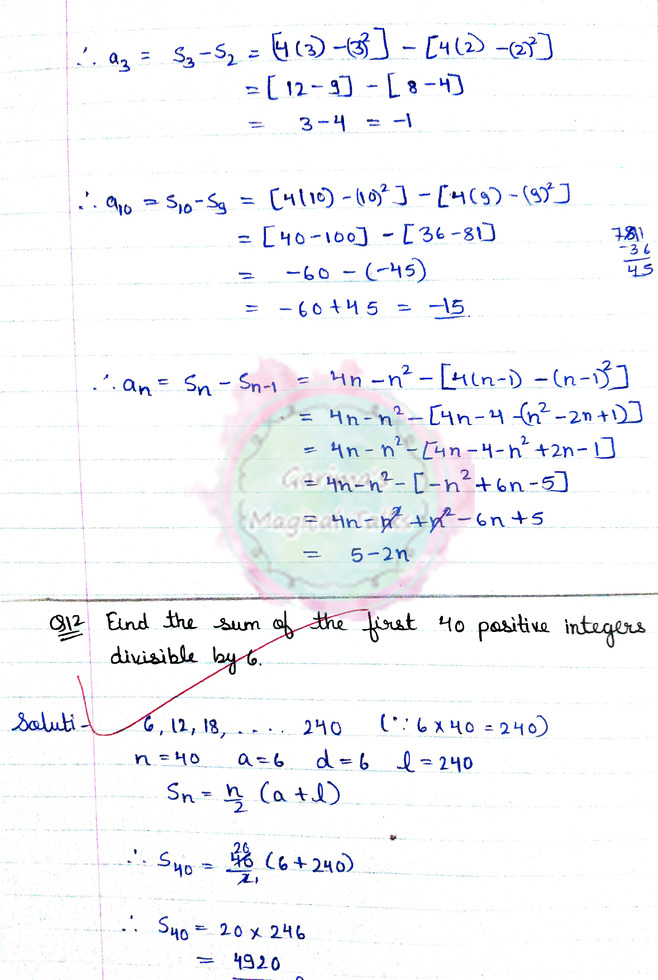 ∴ a₃ = S₃-S₂ = [4(3) -(3)²] - [4(2) -(2)²]
= [12-9] - [8-4]
= 3-4 = -1
∴ a₁₀ = S₁₀-S₉ = [4(10) -(10)²] - [4(9) -(9)²]
= [40-100] - [36-81]
= -60 - (-45)
= -60+45 = -15
-36
45
∴ an = Sn - Sn-1 = 4n-n² - [4(n-1) - (n-1)²]
= 4n-n² - [4n-4-(n²-2n+1)]
= 4n-n² - [4n-4-n²+2n-1]
= 4n-n² - [-n²+6n-5]
= 4n-n²+n²-6n+5
= 5-2n
Garima's
Magical
Q12 Find the sum of the first 40 positive integers
divisible by 6.
Soluti- 6, 12, 18, ..... 240 (∵ 6×40 = 240)
n=40 a=6 d=6 l=240
Sn = n/2 (a+l)
∴ S₄₀ = 40/2 (6+240)
20
1
∴ S₄₀ = 20×246
= 4920